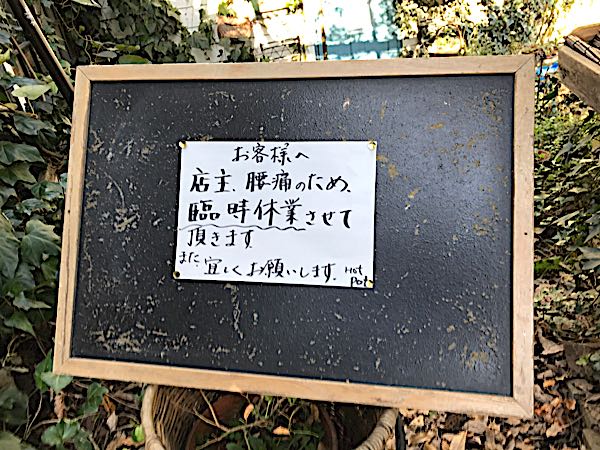 お客様へ
店主、腰痛のため、
臨時休業させて
頂きます
また宜しくお願いします。Hot
Pot